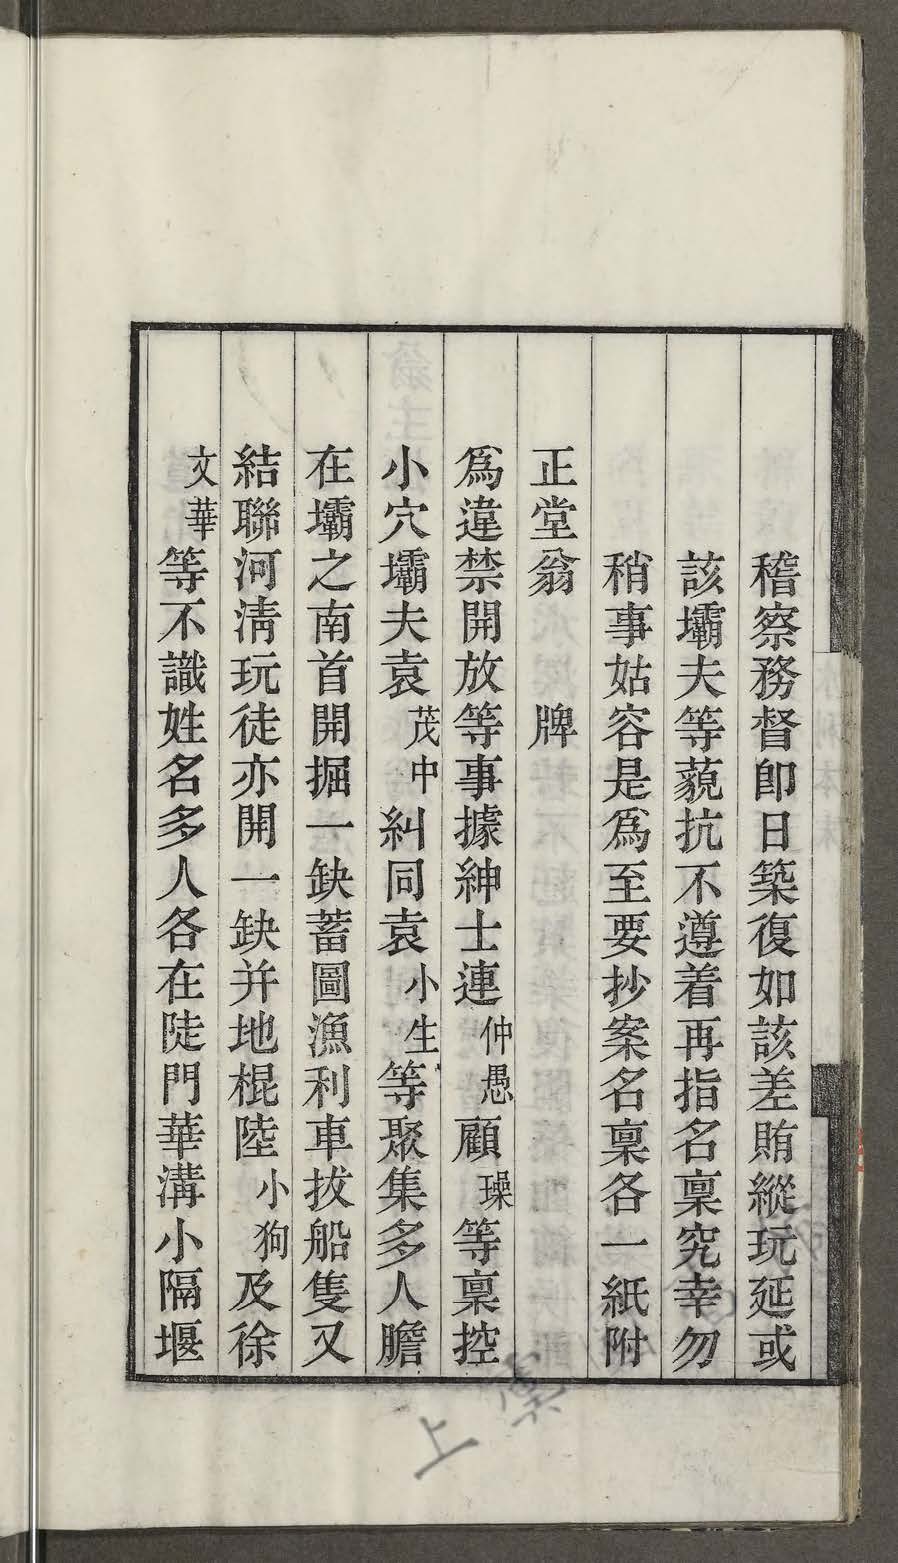 稽察務督卽日築復如該差賄縱玩延或
該壩夫等藐抗不遵着再指名稟究幸勿
稍事姑容是爲至要抄案名稟各一紙附
正堂翁　　牌
爲違禁開放等事據紳士連仲愚顧璪等稟控
小穴壩夫袁茂中糾同袁小生等聚集多人膽
在壩之南首開掘一缺蓄圖漁利車拔船隻又
結聯河淸玩徒亦開一缺并地棍陸小狗及徐
文華等不識姓名多人各在陡門華溝小隔堰
上虞